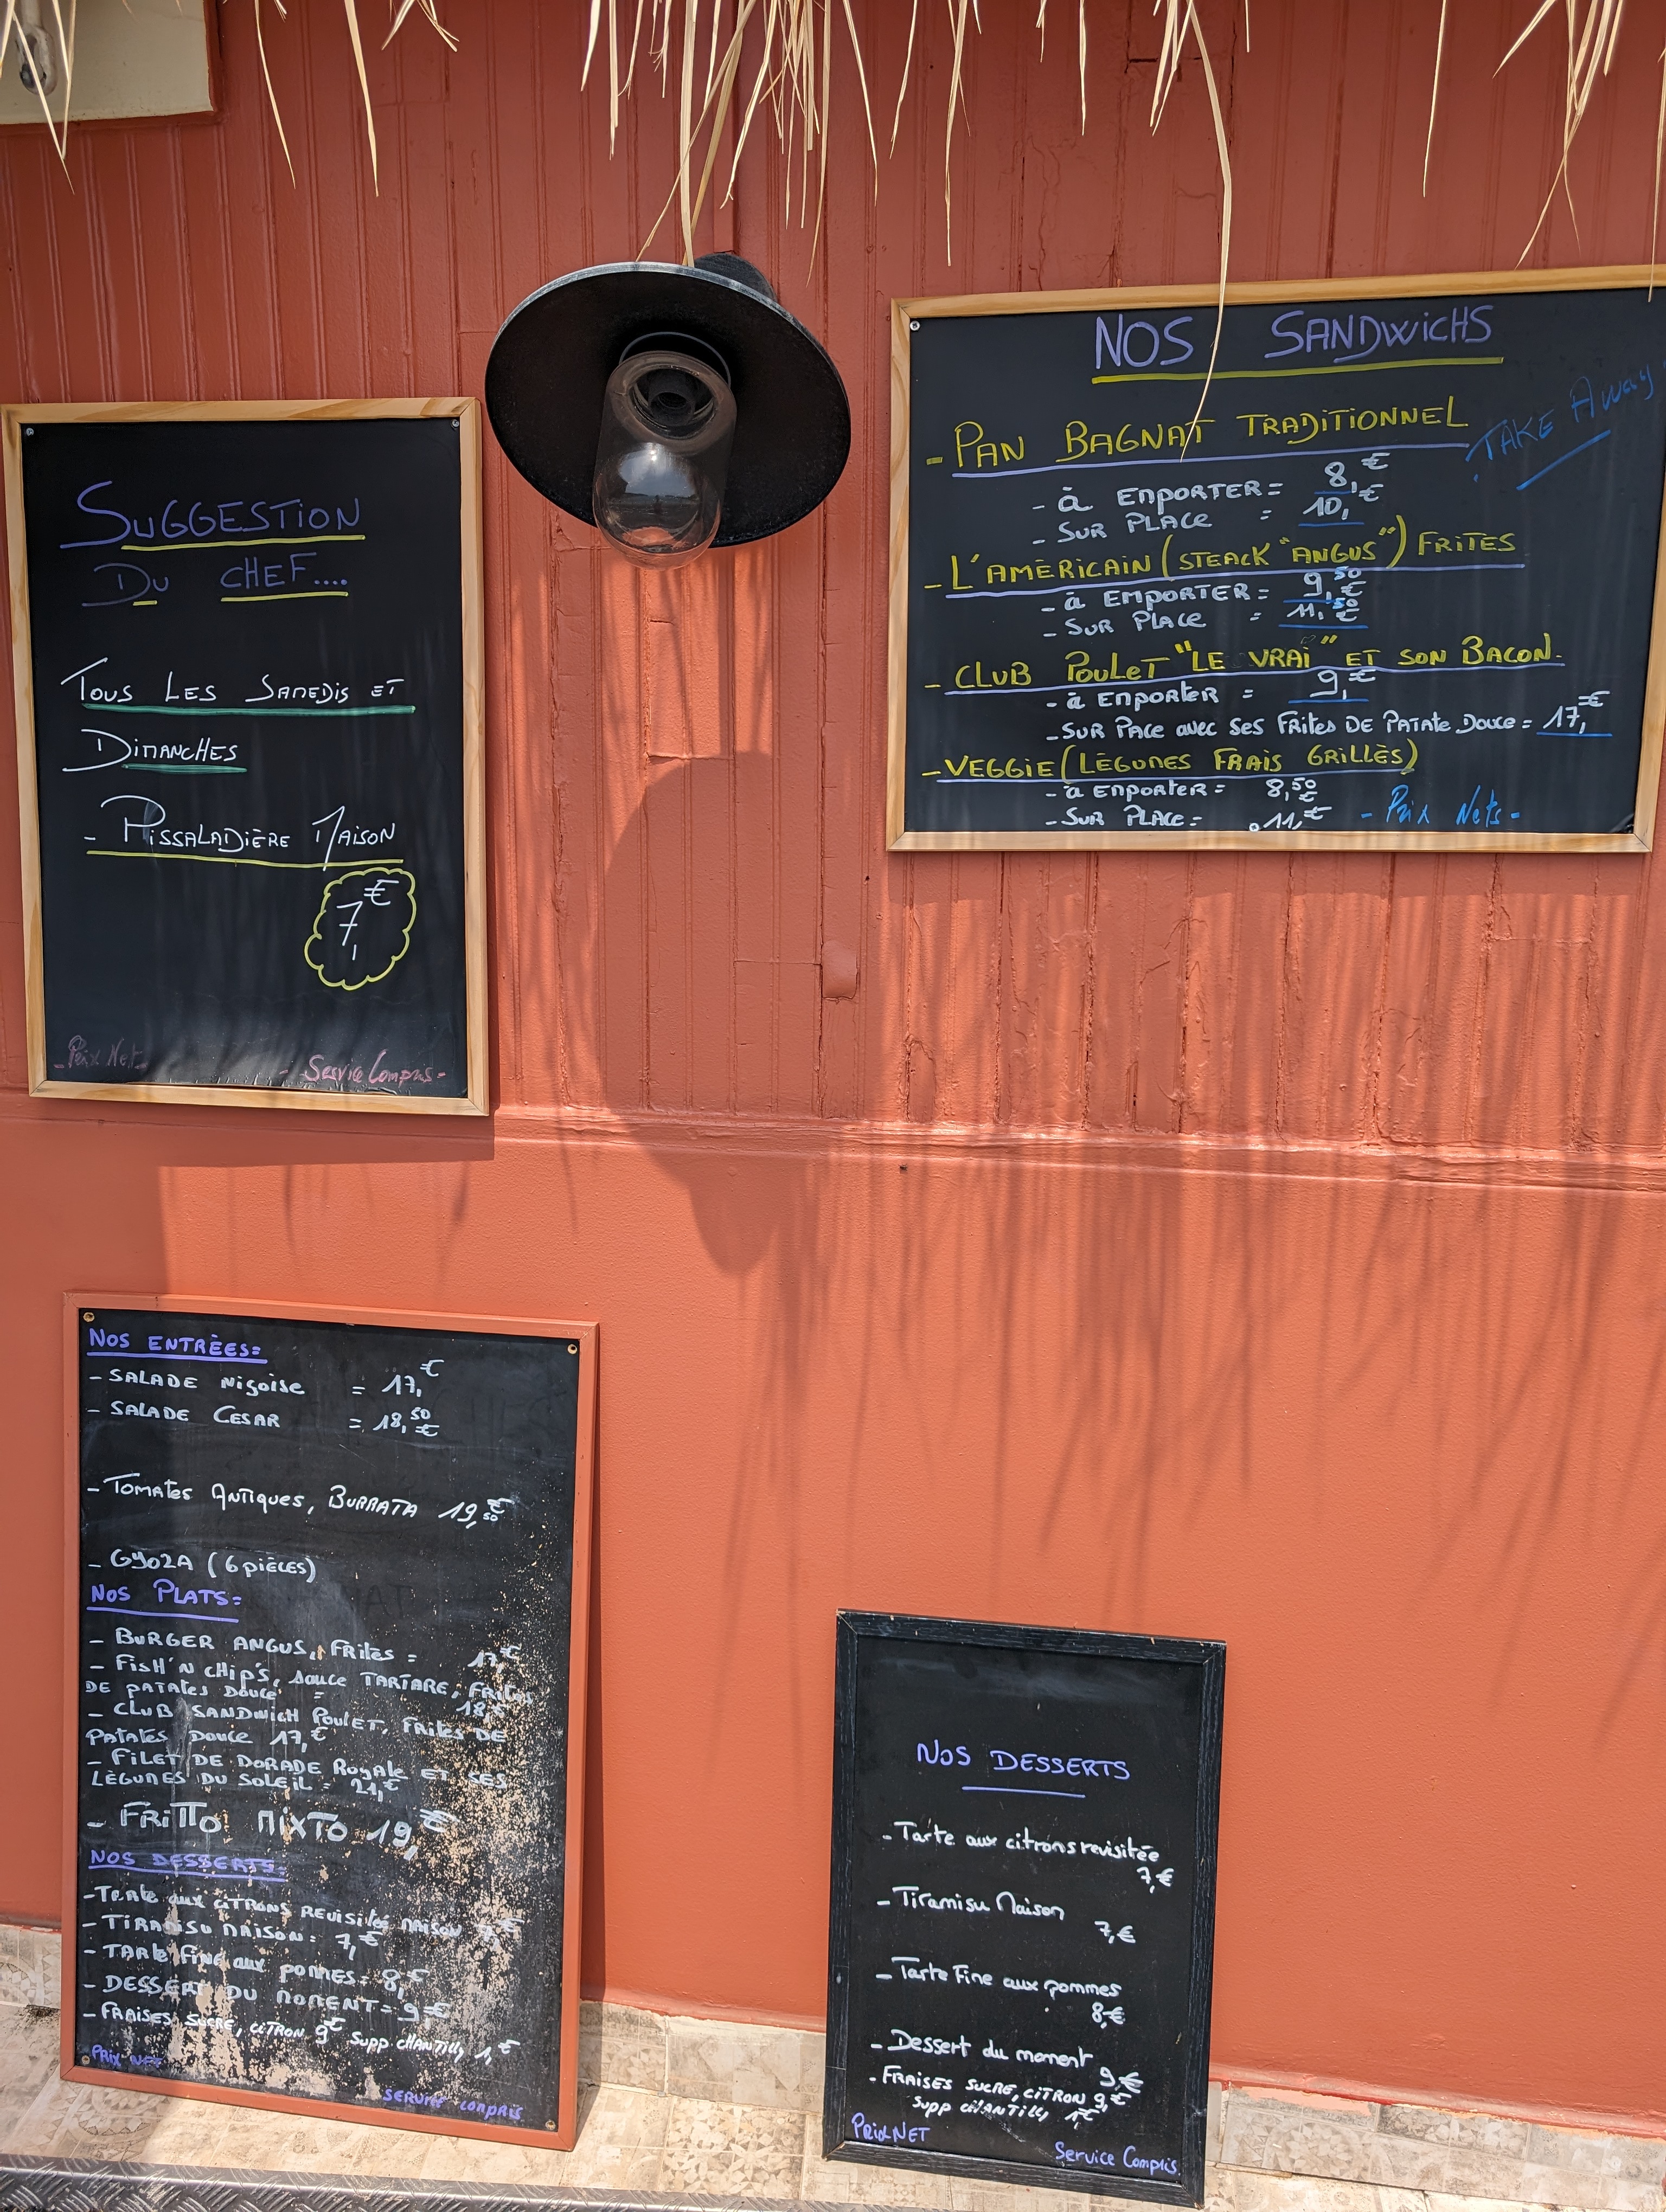 SUGGESTION
DU CHEF....
TOUS LES SAMEDIS ET
DIMANCHES
- PISSALADIÈRE MAISON
7,€
- Prix Net -
- Service Compris -
NOS SANDWICHS
TAKE AWAY
- PAN BAGNAT TRADITIONNEL
- à EMPORTER = 8,€
- SUR PLACE = 10,€
- L'AMÈRICAIN (STEACK "ANGUS") FRITES
- à EMPORTER = 9,50€
- SUR PLACE = 11,50€
- CLUB POULET "LE VRAI" ET SON BACON.
- à EMPORTER = 9,€
- SUR PACE avec SES FRITES DE PATATE DOUCE = 17,€
- VEGGIE (LÈGUMES FRAIS GRILLÈS)
- à EMPORTER = 8,50€
- SUR PLACE = 11,€
- Prix Nets -
NOS ENTRÈES =
- SALADE NIÇOISE = 17,€
- SALADE CESAR = 18,50€
- TOMATES ANTIQUES, BURRATA 19,50€
- GYOZA (6 PIÈCES)
NOS PLATS =
- BURGER ANGUS, FRITES = 17,€
- FISH'N CHIP'S, SAUCE TARTARE, FRITES
DE PATATES DOUCE = 18€
- CLUB SANDWICH POULET, FRITES DE
PATATES DOUCE 17,€
- FILET DE DORADE ROYALE ET SES
LÈGUMES DU SOLEIL = 21,€
- FRITTO MIXTO 19,€
NOS DESSERTS =
- TARTE aux CITRONS REVISITÉE MAISON 7,€
- TIRAMISU MAISON = 7,€
- TARTE FINE aux POMMES = 8,€
- DESSERT DU MOMENT = 9€
- FRAISES SUCRE, CITRON 9€ SUPP. CHANTILLY 1,€
PRIX NET
SERVICE COMPRIS
NOS DESSERTS
- Tarte aux citrons revisitée
7,€
- Tiramisu Maison
7,€
- Tarte Fine aux pommes
8€
- Dessert du moment
9€
- FRAISES SUCRE, CITRON 9,€
SUPP CHANTILLY 1€
Prix NET
Service Compris.